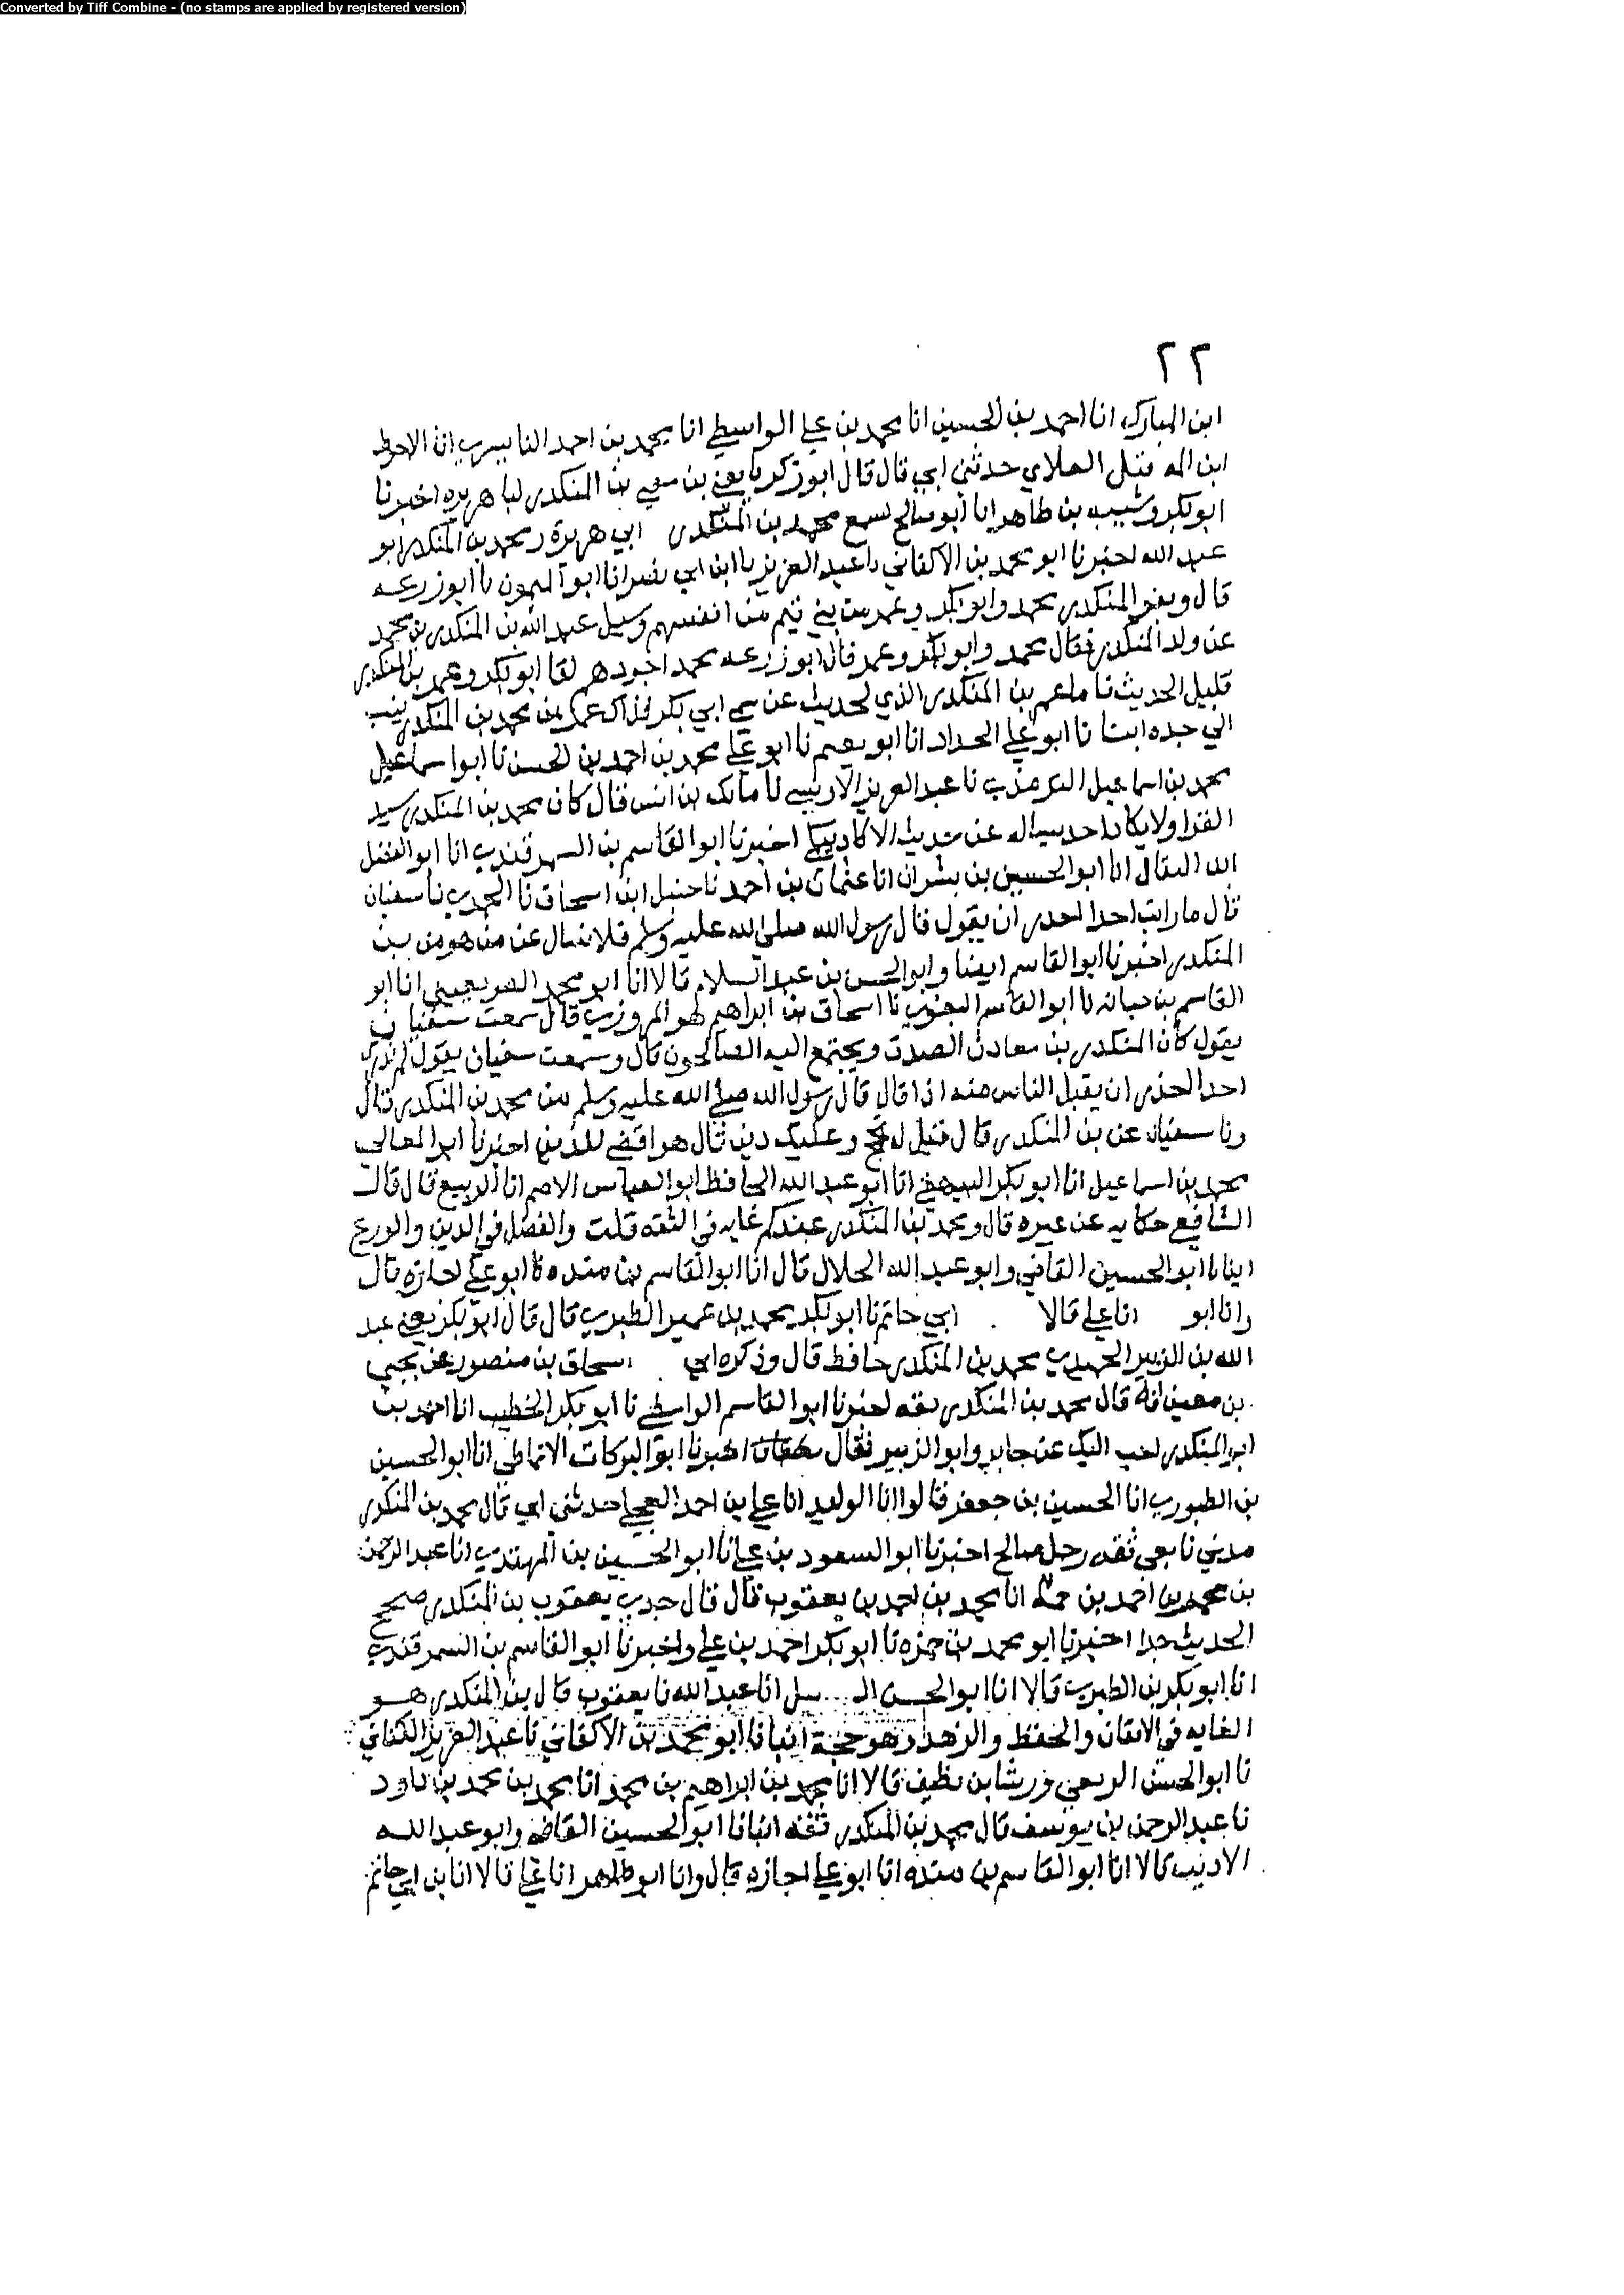 Converted by Tiff Combine - (no stamps are applied by registered version)
٢٢
ابن المبارك انا احمد بن الحسين انا محمد بن علي الواسطي انا محمد بن احمد انا الاحوص
ابن المفضل حدثني ابي قال قال ابو زكريا يعني بن معين بن المنكدر اباهريره اخبرنا
ابو بكر وشبيب بن طاهر انا ابو صالح سمع محمد بن المنكدر ابي هريرة ومحمد بن المنكدر ابو
عبد الله اخبرنا ابو محمد بن الاكفاني نا عبد العزيز نا ابن ابي نصر انا ابو الميمون نا ابو زرعه
قال وبنو المنكدر محمد وابو بكر وعمر من بني تيم من انفسهم وسيل عبد الله بن المنكدر بن محمد
عن ولد المنكدر فقال محمد وابو بكر وعمر قال ابو زرعه محمد اجودهم لقا ابو بكر وعمر بن المنكدر
قليل الحديث نا ما عمر بن المنكدر الذي الحديث عن سمي ابي بكر فذاك عمر بن محمد بن المنكدر ينسب
الي جده انبانا ابو علي الحداد انا ابو نعيم نا ابو علي محمد بن احمد بن الحسن نا ابو اسماعيل
محمد بن اسماعيل الترمذي نا عبد العزيز الاويسي نا مالك بن انس قال كان محمد بن المنكدر سيد
القرا ولا يكاد احد يساله عن حديث الا كاد يبكي اخبرنا ابو القاسم بن السمرقندي انا ابو الفضل
البقال انا ابو الحسين بن بشران انا عثمان بن احمد نا حنبل ابن اسحاق نا الحميدي نا سفيان
قال ما رايت احدا اجدر ان يقول قال رسول الله صلي الله عليه وسلم فلا نسال عن من هو من بن
المنكدر اخبرنا ابو القاسم ايضا وابو الحسن بن عبد السلام قالا انا ابو محمد الصريفيني انا ابو
القاسم بن حبابه نا ابو القاسم البغوي نا اسحاق بن ابراهيم لهو المروزي قال سمعت سفيان
يقول كان المنكدر بن معادن الصدق ويجتمع اليه الصالحون قال وسمعت سفيان يقول لم ندرك
احدا احذر ان يقبل الناس منه اذا قال قال رسول الله صلي الله عليه وسلم من محمد بن المنكدر قال
ونا سفيان عن بن المنكدر قال قيل له تحج وعليك دين قال هو اقضي للدين اخبرنا ابو المعالي
محمد بن اسماعيل انا ابو بكر البيهقي انا ابو عبد الله الحافظ ابو العباس الاصم انا الربيع قال قال
الشافعي حكايه عن غيره قال ومحمد بن المنكدر عندكم غايه في الثقه قلت والفضل في الدين والورع
انبانا ابو الحسين القاضي وابو عبد الله الخلال قال انا ابو القاسم بن منده نا ابو علي اجازه قال
وانا ابو انا علي قالا ابي حاتم نا ابو بكر محمد بن عمير الطبري قال قال ابو بكر يعني عبد
الله بن الزبير الحميدي محمد بن المنكدر حافظ قال وذكره ابي اسحاق بن منصور عن يحيي
بن معين انه قال محمد بن المنكدر ثقه اخبرنا ابو القاسم الواسطي نا ابو بكر الخطيب انا احمد بن
ابن المنكدر احب اليك عن جابر وابو الزبير فقال ثقتان اخبرنا ابو البركات الانماطي انا ابو الحسين
بن الطيوري انا الحسين بن جعفر قالوا انا الوليد انا علي بن احمد العجلي حدثني ابي قال محمد بن المنكدر
مديني تابعي ثقه رجل صالح اخبرنا ابو السعود بن علي نا ابو الحسين بن المهتدي انا عبد الرحمن
بن عمر بن احمد بن حمه انا محمد بن احمد بن يعقوب قال قال جدي يعقوب بن المنكدر صحيح
الحديث جدا اخبرنا ابو محمد بن حمزه نا ابو بكر احمد بن علي واخبرنا ابو القاسم بن السمرقندي
انا ابو بكر بن الطبري قالا انا ابو الحسن انا عبد الله نا يعقوب قال بن المنكدر هو
الغايه في الاتقان والحفظ والزهد وهو حجة انبانا ابو محمد بن الاكفاني نا عبد العزيز الكتاني
نا ابو الحسن الربعي ورشا بن نظيف قالا انا محمد بن ابراهيم بن محمد انا محمد بن محمد بن داود
نا عبد الرحمن بن يوسف قال محمد بن المنكدر ثقه انبانا ابو الحسين القاضي وابو عبد الله
الاديب قالا انا ابو القاسم بن منده انا ابو علي اجازه قال وانا ابو طاهر انا علي قالا انا بن ابي حاتم